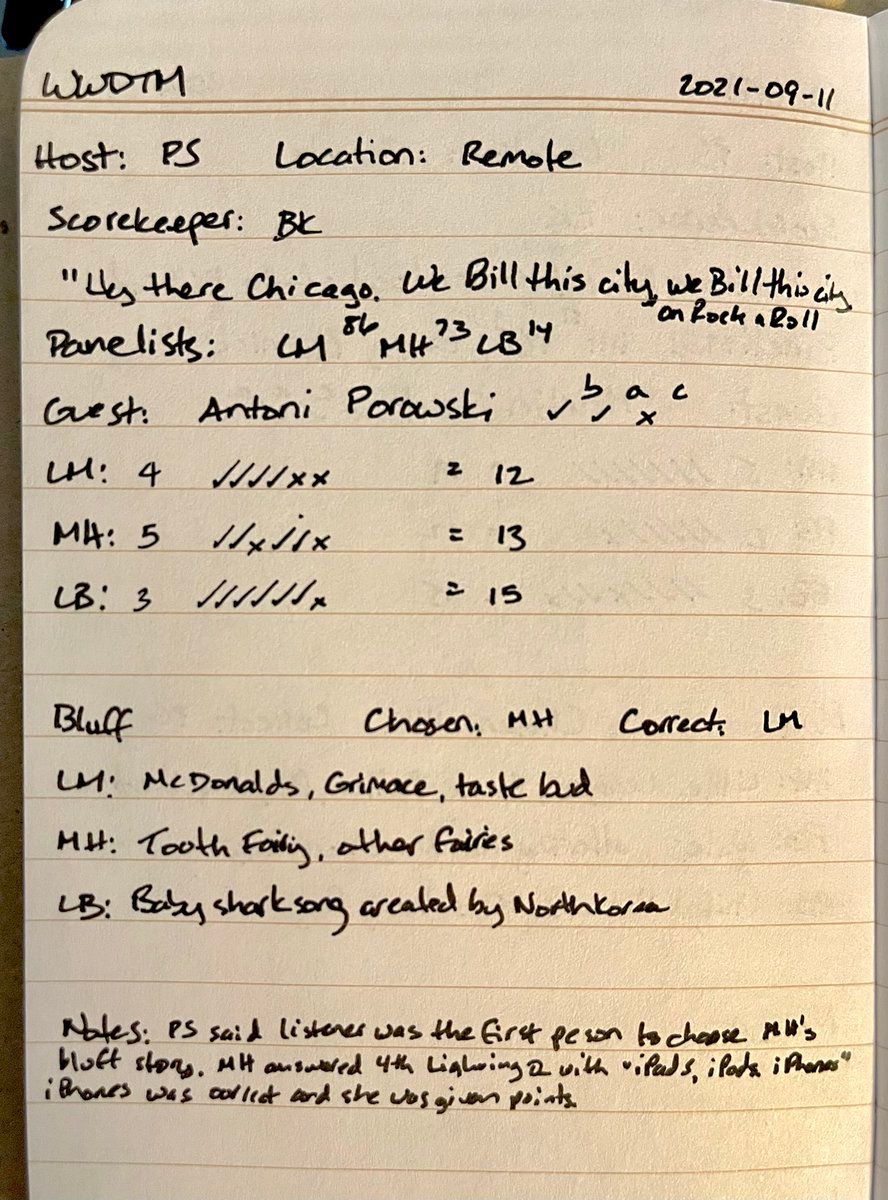 WWDTM 2021-09-11
Host: PS Location: Remote
Scorekeeper: BK
"Hey there Chicago. We Bill this city, we Bill this city
on Rock n Roll
Panelists: LM 86 MH 73 LB 14
Guest: Antoni Porowski ✓ b ✓ a x c
LM: 4 ✓✓✓✓xx = 12
MH: 5 ✓✓x✓✓x = 13
LB: 3 ✓✓✓✓✓✓x = 15
Bluff Chosen: MH Correct: LM
LM: McDonalds, Grimace, taste bud
MH: Tooth Fairy, other fairies
LB: Baby shark song created by North Korea
Notes: PS said listener was the first peson to choose MH's
bluff story. MH answered 4th Lightning Q with "iPads, iPods, iPhones"
iPhones was correct and she was given points.